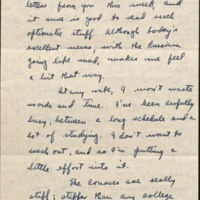 letters from you this week, and
it sure is good to read such
optimistic stuff although today's
excellent news, with the Russians
going like mad, makes me feel
a bit that way.
At any rate, I won't waste
words and time. I've been awfully
busy, between a long schedule and a
lot of studying. I don't want to
wash out, and so I'm putting a
little effort into it.
The courses are really
stiff; stiffer than any college